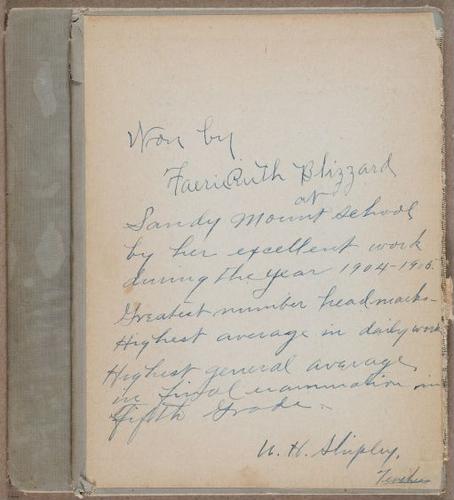 Won by
Faerie Ruth Blizzard
at
Sandy Mount School
by her excellent work
during the year 1904-1905.
Greatest number headmarks-
Highest average in daily work
Highest general average
in final examination in
fifth Grade.
W. H. Shipley,
Teacher